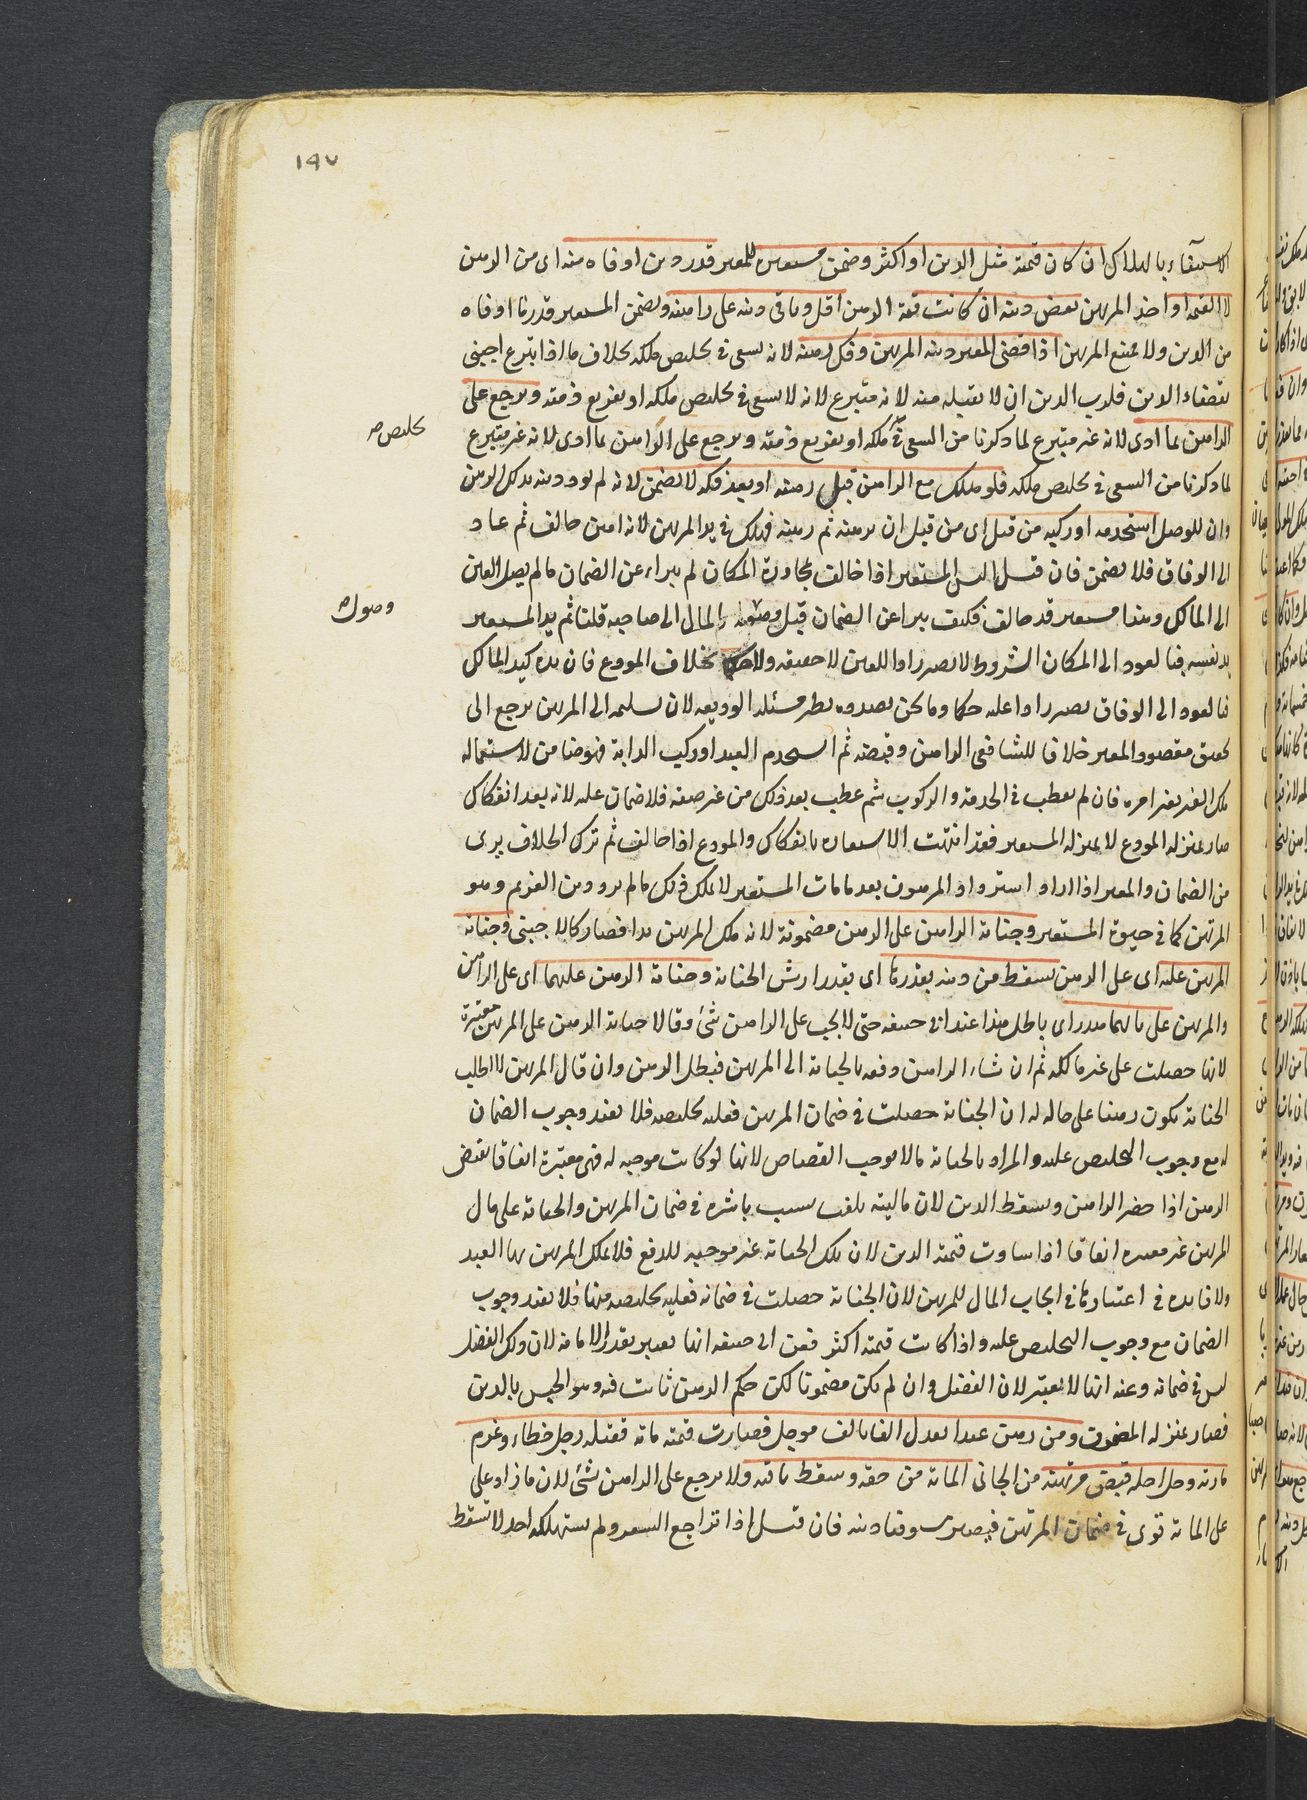 ١٩٧
الاستيفاء بالهلاك ان كان قيمته مثل الدين او اكثر وضمن مستعيره للمعير قدر دين اوفاه منه اى من الرهن
لا القيمة او اخذ المرتهن بعض دينه ان كانت قيمة الرهن اقل وباقى دينه على راهنه ويضمن المستعير قدر ما اوفاه
من الدين ولا يمتنع المرتهن اذا قضى المعير دينه المرتهن وفك رهنه لانه يسعى فى تخليص ملكه بخلاف ما اذا تبرع اجنبى
بقضاء الدين فلرب الدين ان لا يقبله منه لانه متبرع لانه لا يسعى فى تخليص ملكه او تفريغ ذمته ويرجع على
الراهن بما ادى لانه غير متبرع لما ذكرنا من السعى فى ملكه او تفريغ ذمته ويرجع على الراهن بما ادى لانه غير متبرع
تخليص صح
لما ذكرنا من السعى فى تخليص ملكه فلو هلك مع الراهن قبل رهنه او بعد فكه لا يضمن لانه لم يؤد دينه بذلك الرهن
وان استخدمه او ركبه من قبل اى من قبل ان يرهنه ثم رهنه فهلك فى يد المرتهن لانه امين خالف ثم عاد
الى الوفاق فلا يضمن فان قيل اليس المستعير اذا خالف بمجاوزة المكان لم يبراء عن الضمان ما لم يصل العين
الى المالك وهذا مستعير قد خالف فكيف يبرا عن الضمان قبل المال الى صاحبه قلنا ثم يد المستعير
وصول صح
يد نفسه فبالعود الى المكان المشروط لا يصير رادا للعين لا حقيقة ولا حكما بخلاف المودع فان يده كيد المالك
فبالعود الى الوفاق يصير رادا عليه حكما وما نحن بصدده نظير مسئلة الوديعة لان تسليمه الى المرتهن يرجع الى
تحقيق مقصود المعير خلافا للشافعى الراهن وقبضه ثم استخدم العبد او ركب الدابة فهو ضامن لاستعماله
ملك الغير بغير امره فان لم يعطب فى الخدمة والركوب ثم عطب بعد ذلك من غير صنعه فلا ضمان عليه لانه بعد انفكاك
صار بمنزلة المودع لا بمنزلة المستعير فقد انتهت الاستعارة بانفكاك والمودع اذا خالف ثم ترك الخلاف يبرى
من الضمان والمعير اذا اراد استرداد المرهون بعد ما مات المستعير لا يملك ذلك ما لم يرد دين الغريم وهو
المرتهن كما فى حيوة المستعير وجناية الراهن على الرهن مضمونة لانه ملك المرتهن يدا فصار كالاجنبى وجناية
المرتهن عليه اى على الرهن يسقط من دينه بقدرها اى بقدر ارش الجناية وجناية الرهن عليهما اى على الراهن
والمرتهن على مالهما هدر اى باطل هذا عند ابى حنيفة حتى لا يجب على الراهن شئ وقالا جناية الرهن على المرتهن معتبرة
لانها حصلت على غير مالكه ثم ان شاء الراهن دفعه بالجناية الى المرتهن فيبطل الرهن وان قال المرتهن لا اطلب
الجناية يكون رهنا على حاله له ان الجناية حصلت فى ضمان المرتهن فعليه تخليصه فلا يفيد وجوب الضمان
له مع وجوب التخليص عليه والمراد بالجناية ما لا يوجب القصاص لانها لو كانت موجبة له فهى معتبرة اتفاقا يقتص
الرهن اذا حضر الراهن ويسقط الدين لان ماليته تلفت بسبب باشره فى ضمان المرتهن والجناية على مال
المرتهن غير معتبرة اتفاقا اذا ساوت قيمته الدين لان تلك الجناية غير موجبة للدفع فلا يملك المرتهن بها العبد
ولا فائدة فى اعتبارها فى ايجاب المال للمرتهن لان الجناية حصلت فى ضمانه فعليه تخليصه منها فلا يفيد وجوب
الضمان مع وجوب التخليص عليه واذا كانت قيمته اكثر فعن ابى حنيفة انها تعتبر بقدر الامانة لان ذلك الفضل
ليس فى ضمانه وعنه انها لا يعتبر لان الفضل وان لم يكن مضمونا لكن حكم الرهن ثابت فيه وهو الحبس بالدين
فصار بمنزلة المضمون ومن رهن عبدا يعدل الفا بالف مؤجل فصارت قيمته مائة فقتله رجل خطاء وغرم
مائة وحل اجله قبض مرتهنه من الجانى المائة من حقه وسقط باقيه ولا يرجع على الراهن بشئ لان ما زاد على
على المائة توى فى ضمان المرتهن فيصير مستوفيا دينه فان قيل اذا تراجع السعر ولم يستهلكه احد لا تسقط